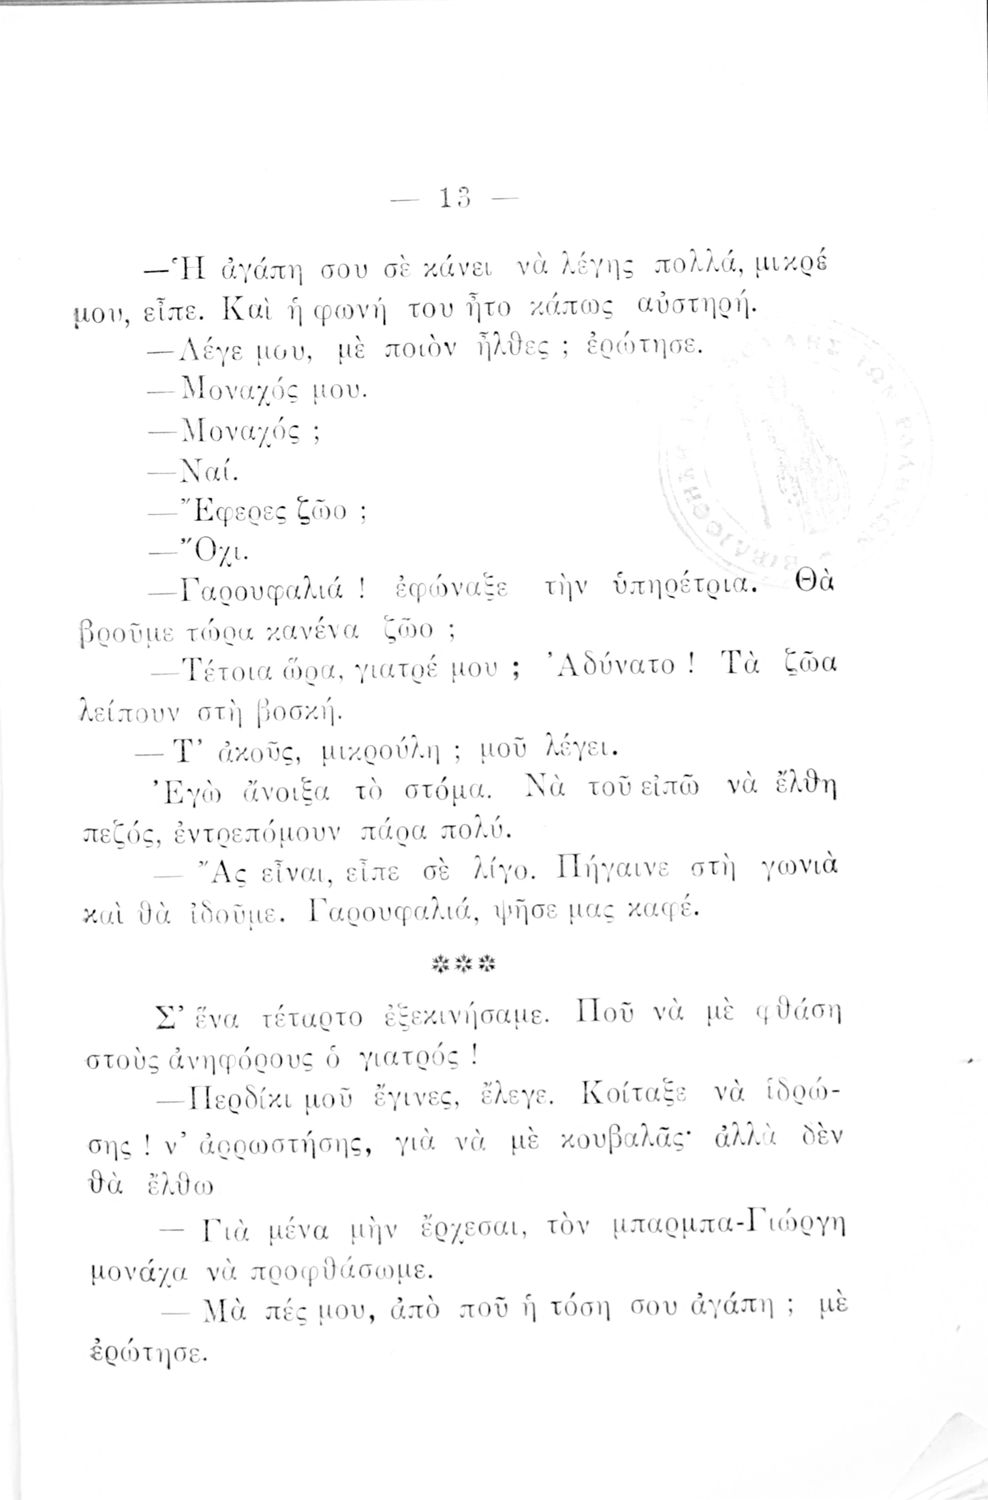 — 13 —
—Ἡ ἀγάπη σου σὲ κάνει νὰ λέγῃς πολλά, μικρέ
μου, εἶπε. Καὶ ἡ φωνή του ἦτο κάπως αὐστηρή.
—Λέγε μου, μὲ ποιὸν ἦλθες ; ἐρώτησε.
—Μοναχός μου.
—Μοναχός ;
—Ναί.
—Ἔφερες ζῶο ;
—Ὄχι.
—Γαρουφαλιά ! ἐφώναξε τὴν ὑπηρέτρια. Θὰ
βροῦμε τώρα κανένα ζῶο ;
—Τέτοια ὥρα, γιατρέ μου ; Ἀδύνατο ! Τὰ ζῶα
λείπουν στὴ βοσκή.
— Τ’ ἀκοῦς, μικρούλη ; μοῦ λέγει.
Ἐγὼ ἄνοιξα τὸ στόμα. Νὰ τοῦ εἰπῶ νὰ ἔλθη
πεζός, ἐντρεπόμουν πάρα πολύ.
— Ἂς εἶναι, εἶπε σὲ λίγο. Πήγαινε στὴ γωνιὰ
καὶ θὰ ἰδοῦμε. Γαρουφαλιά, ψῆσε μας καφέ.
***
Σ’ ἕνα τέταρτο ἐξεκινήσαμε. Ποῦ νὰ μὲ φθάση
στοὺς ἀνηφόρους ὁ γιατρός !
—Περδίκι μοῦ ἔγινες, ἔλεγε. Κοίταξε νὰ ἱδρώ-
σης ! ν’ ἀρρωστήσης, γιὰ νὰ μὲ κουβαλᾶς· ἀλλὰ δὲν
θὰ ἔλθω
— Γιὰ μένα μὴν ἔρχεσαι, τὸν μπαρμπα-Γιώργη
μονάχα νὰ προφθάσωμε.
— Μὰ πές μου, ἀπὸ ποῦ ἡ τόση σου ἀγάπη ; μὲ
ἐρώτησε.
ΒΙΒΛΙΟΘΗΚΗ ΒΟΥΛΗΣ ΤΩΝ